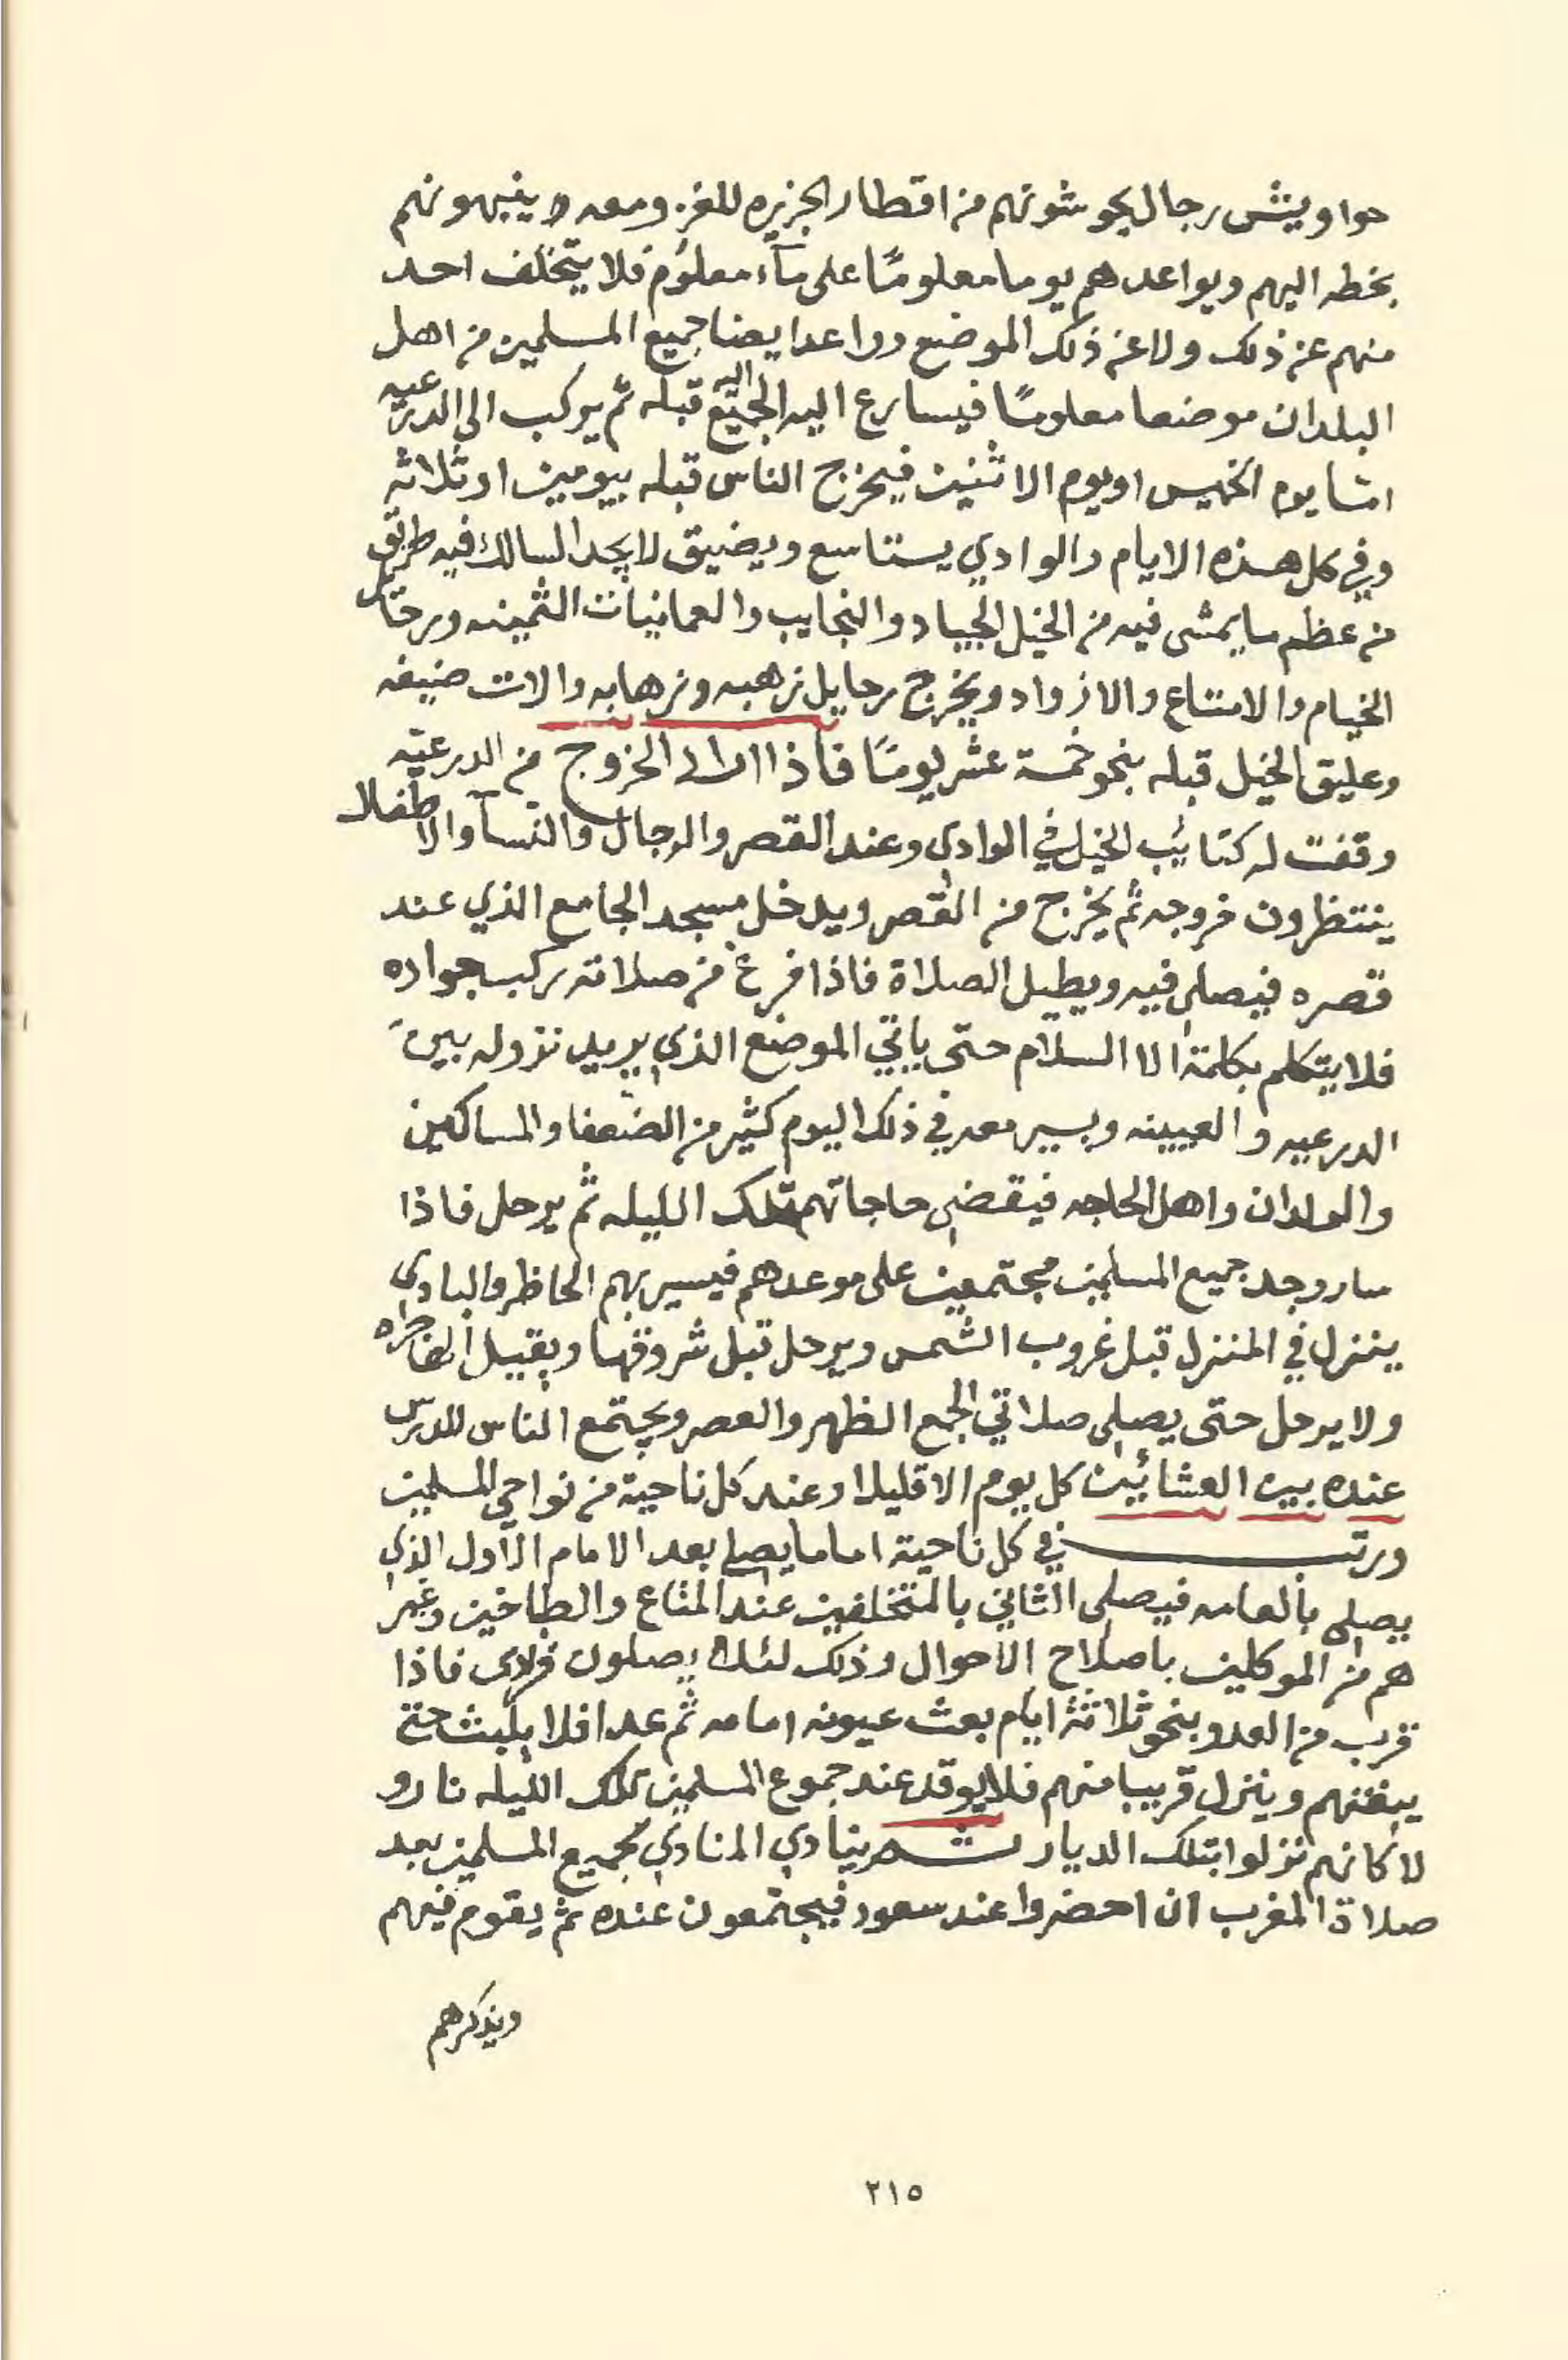 حواويش رجال يحوشونهم من اقطار الجزيره للغزو معه وينبهونهم
بخطه اليهم ويواعدهم يوما معلومًا على مآء معلوم فلا يتخلف احد
منهم عن ذلك ولا عن ذلك الموضع وواعد ايضا جميع المسلمين من اهل
البلدان موضعا معلومًا فيسارع اليه الجميع اليه قبله ثم يركب الى الدرعيه
امّا يوم الخميس او يوم الاثنين فيخرج الناس قبله بيومين او ثلاثه
وفي كل هذه الايام والوادي يستاسع ويضيق لا يجد السالك فيه طريق
من عظم ما يمشى فيه من الخيل الجياد والنجايب والعمانيات الثمينه وبرختار
الخيام والامتاع والازواد ويخرج رحايل زهبه وزهابه والات ضيفه
وعليق الخيل قبله بنحو خمسة عشر يومًا فاذا اراد الخروج من الدرعيّه
وقفت له كتائب الخيل في الوادي وعند القصر والرجال والنسآ والاطفال
ينتظرون خروجه ثم يخرج من القصر ويدخل مسجد الجامع الذي عند
قصره فيصلي فيه ويطيل الصلاة فاذا فرغ من صلاته ركب جواده
فلا يتكلم بكلمة الا السلام حتى ياتي الموضع الذي يريد نزوله بين
الدرعيه والعيينه ويسير معه في ذلك اليوم كثير من الضعفا والمساكين
والولدان واهل الحاجه فيقضي حاجاتهم تلك الليله ثم يرحل فاذا
سار وجد جميع المسلمين مجتمعين على موعدهم فيسير بهم الحاظر والبادي
ينزل في المنزل قبل غروب الشمس ويرحل قبل شروقها ويقيل الهاجره
ولا يرحل حتى يصلي صلاتي الجمع الظهر والعصر ويجتمع الناس للدرس
عنده بين العشائين كل يوم الا قليلا وعند كل ناحية من نواحي المسلمين
ورتب في كل ناحية اماما يصلي بعد الامام الاول الذي
يصلي بالعامه فيصلي الثاني بالمتخلفين عند المتاع والطباخين وغير
هم من الموكلين باصلاح الاحوال وذلك لئلا يصلون فرادى فاذا
قرب من العدو بنحو ثلاثة ايام بعث عيونه امامه ثم عدا فلا يلبث حتى
يبغتهم وينزل قريبا منهم فلا يوقد عند جموع المسلمين تلك الليله نار و
لا كانهم نزلوا بتلك الديار ثم ينادي المنادي لجميع المسلمين بعد
صلاة المغرب ان احضروا عند سعود فيجتمعون عنده ثم يقوم فيهم
ويذكرهم
٢١٥